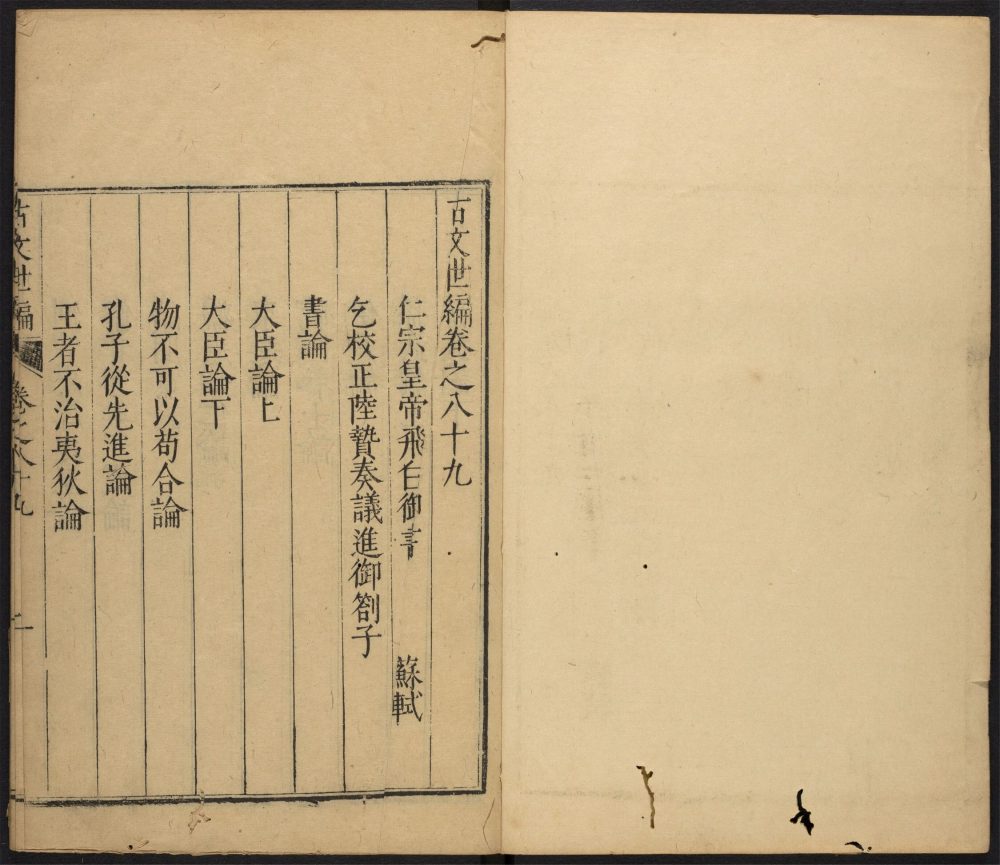 古文世編卷之八十九
仁宗皇帝飛白御書　蘇軾
乞校正陸贄奏議進御劄子
書論
大臣論上
大臣論下
物不可以苟合論
孔子從先進論
王者不治夷狄論
古文世編　卷之八十九